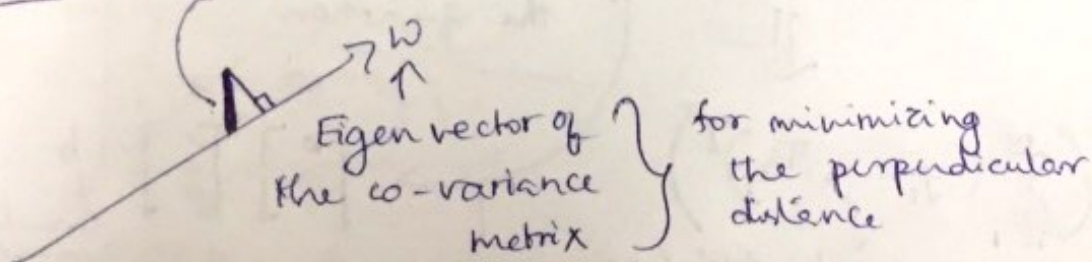 w
Eigen vector of
the co-variance
metrix
for minimizing
the perpendicular
distance